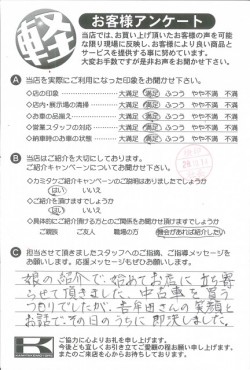 軽
お客様アンケート
当店では、お買い上げ頂いたお客様の声を可能
な限り現場に反映し、お客様により良い商品と
サービスを提供する事に努めています。
大変お手数ですが是非お声をお聞かせ下さい。
A 当店を実際にご利用になった印象をお聞かせ下さい。
◇店の印象 大満足 満足 ふつう やや不満 不満
◇店内・展示場の清掃 大満足 満足 ふつう やや不満 不満
◇お車の品揃え 大満足 満足 ふつう やや不満 不満
◇営業スタッフの対応 大満足 満足 ふつう やや不満 不満
◇納車時のお車の状態 大満足 満足 ふつう やや不満 不満
B 当店はご紹介を大切にしております。
ご紹介キャンペーンについてお聞かせ下さい。
◇カミタケご紹介キャンペーンのご説明はありましたでしょうか
はい いいえ
◇ご紹介キャンペーンにご協力をお願い出来ますでしょうか
はい いいえ
◇具体的にご紹介頂ける方とのご関係をお聞かせ頂けますでしょうか
ご親族 ご友人 職場の方 機会があれば紹介したい
C 担当させて頂きましたスタッフへのご指摘、ご指導メッセージを
お願いします。応援メッセージもぜひお願いします。
娘の紹介で、始めてお店に立ち寄
らせて頂きました。中古車を買う
つもりでしたが、
さんの笑顔と
お話で、その日のうちに即決しました。
ご協力に心よりお礼を申し上げます。
今後とも宜しくお引き立てご愛顧の程お願い申し上げます。
またのご来店を心からお待ちしております。